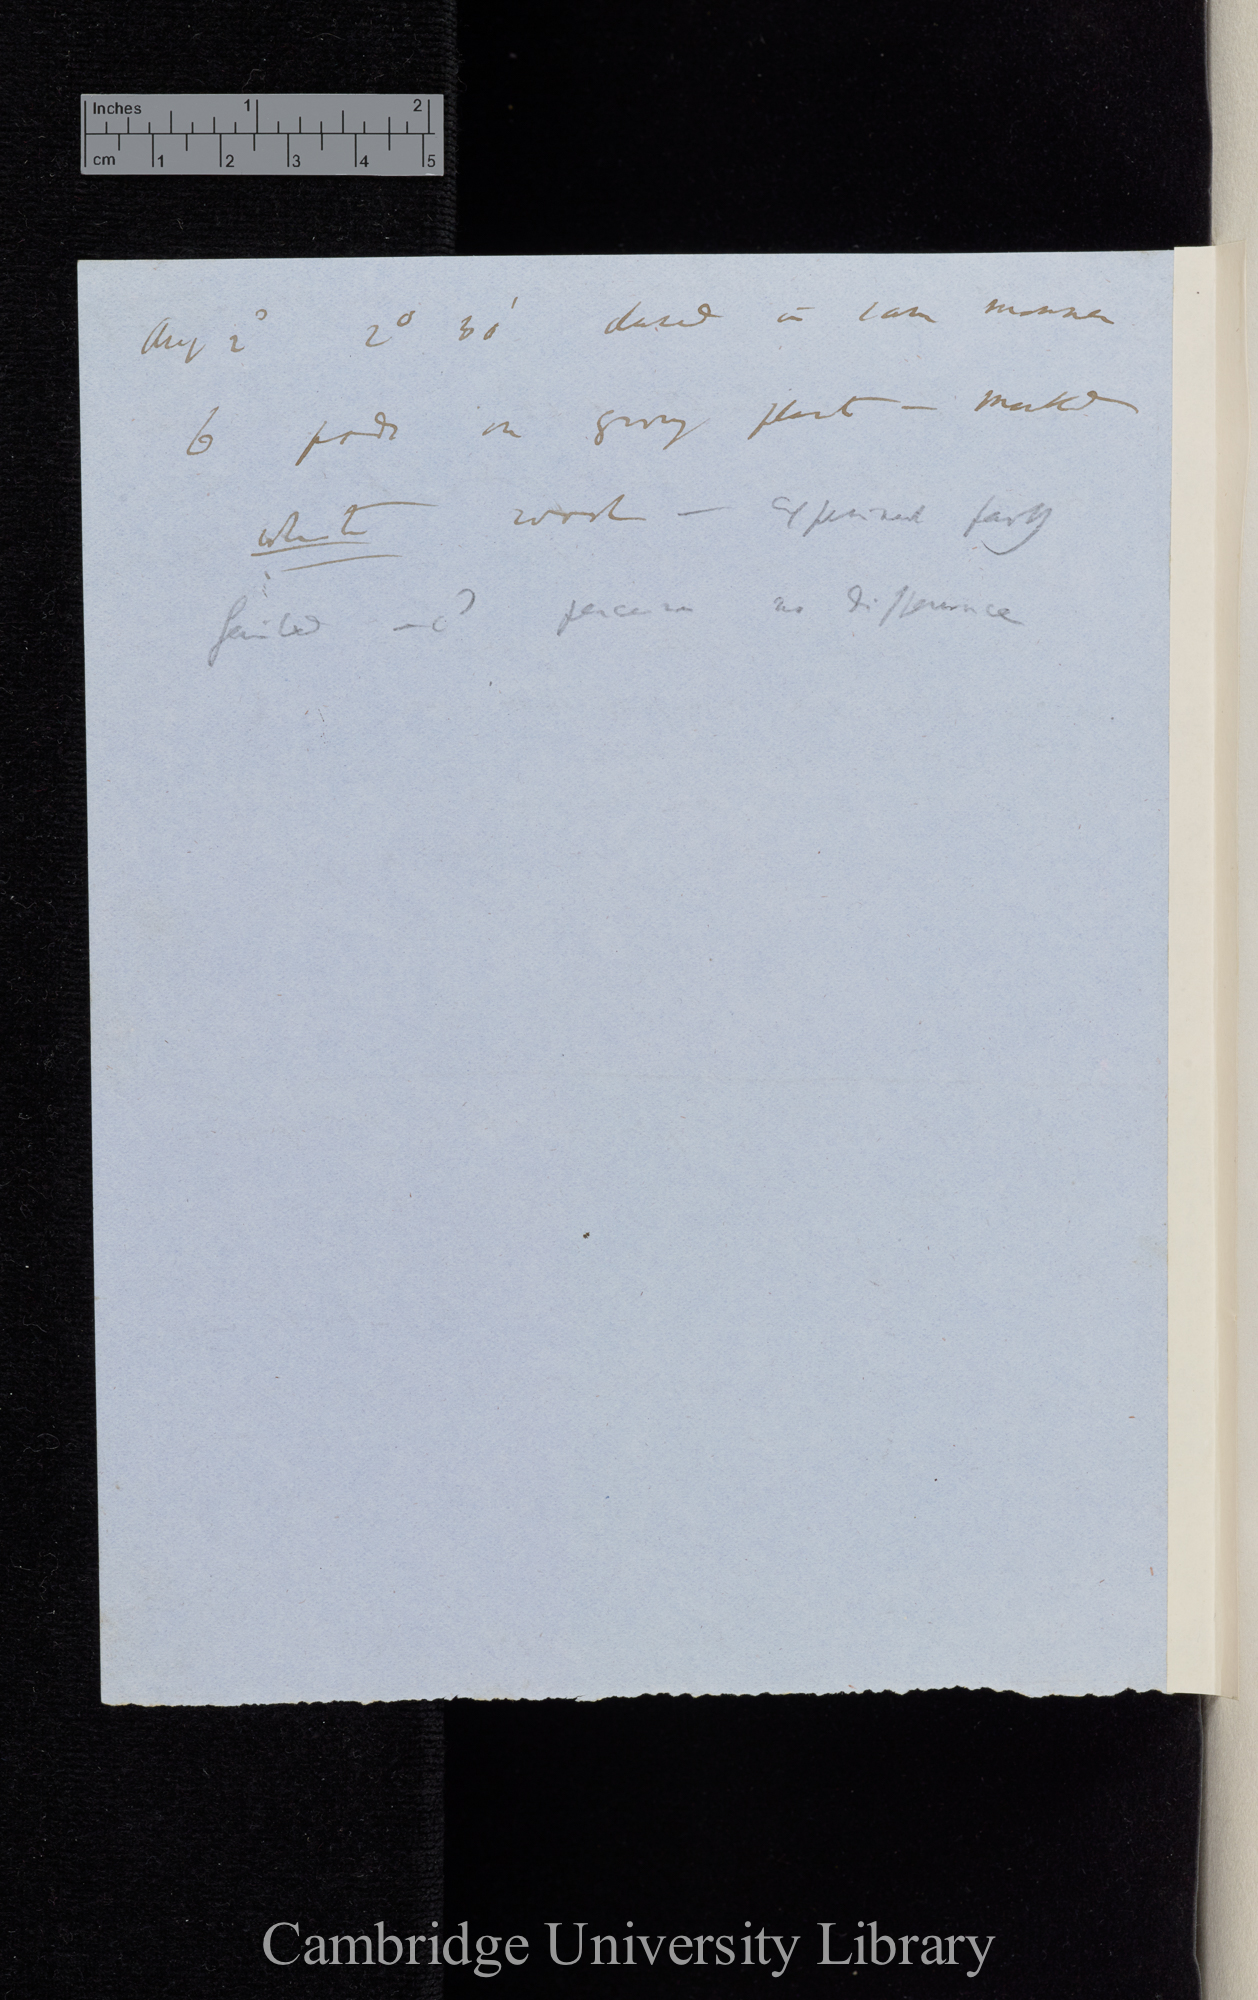 Inches 1 2
cm 1 2 3 4 5
Aug 2d 2° 30' dusted in same manner
6 pods on growing plant — marked
white wool — Experiment partly
failed — cd perceive no difference
Cambridge University Library